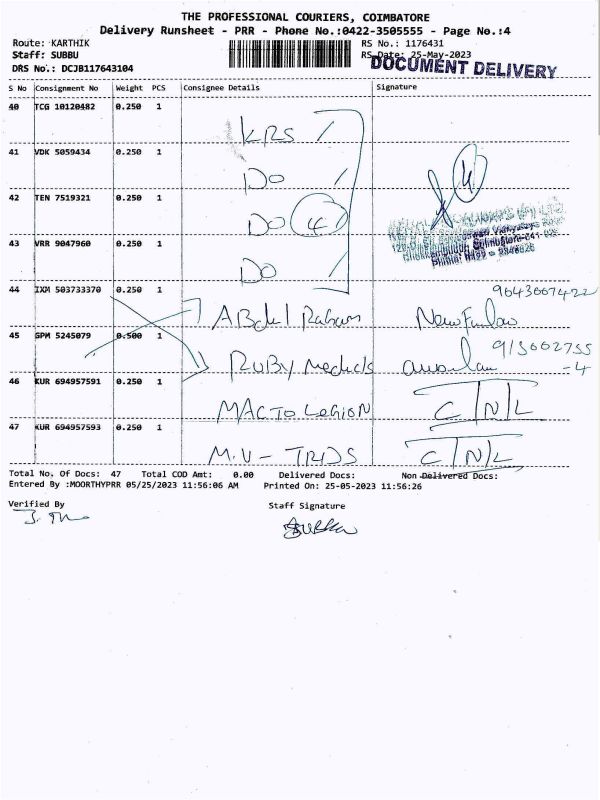 THE PROFESSIONAL COURIERS, COIMBATORE
Delivery Runsheet - PRR - Phone No.:0422-3505555 - Page No.:4
Route: KARTHIK RS No.: 1176431
Staff: SUBBU RS Date: 25-May-2023
DRS No.: DCJB117643104 DOCUMENT DELIVERY
S No Consignment No Weight PCS Consignee Details Signature
40 TCG 10120482 0.250 1 KRS
41 VDK 5059434 0.250 1 DO
42 TEN 7519321 0.250 1 DO 4
43 VRR 9047960 0.250 1 DO
44 IXM 503733370 0.250 1 ABdul
45 GPM 5245079 0.500 1 RUBY Medicals
46 KUR 694957591 0.250 1 MACTO LEGION C/N/L
47 KUR 694957593 0.250 1 M.V - TRDS C/N/L
Total No. Of Docs: 47 Total COD Amt: 0.00 Delivered Docs: Non Delivered Docs:
Entered By :MOORTHYPRR 05/25/2023 11:56:06 AM Printed On: 25-05-2023 11:56:26
Verified By Staff Signature
Subbu